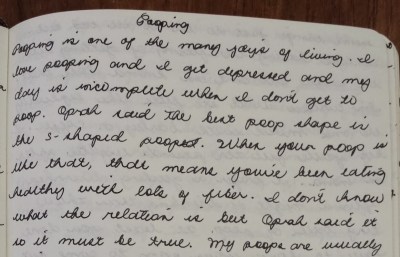 Pooping
Pooping is one of the many joys of living. I
love pooping and I get depressed and my
day is incomplete when I don't get to
poop. Oprah said the best poop shape is
the S-shaped poops. When your poop is
like that, that means you've been eating
healthy with lots of fiber. I don't know
what the relation is but Oprah said it
so it must be true. My poops are usually